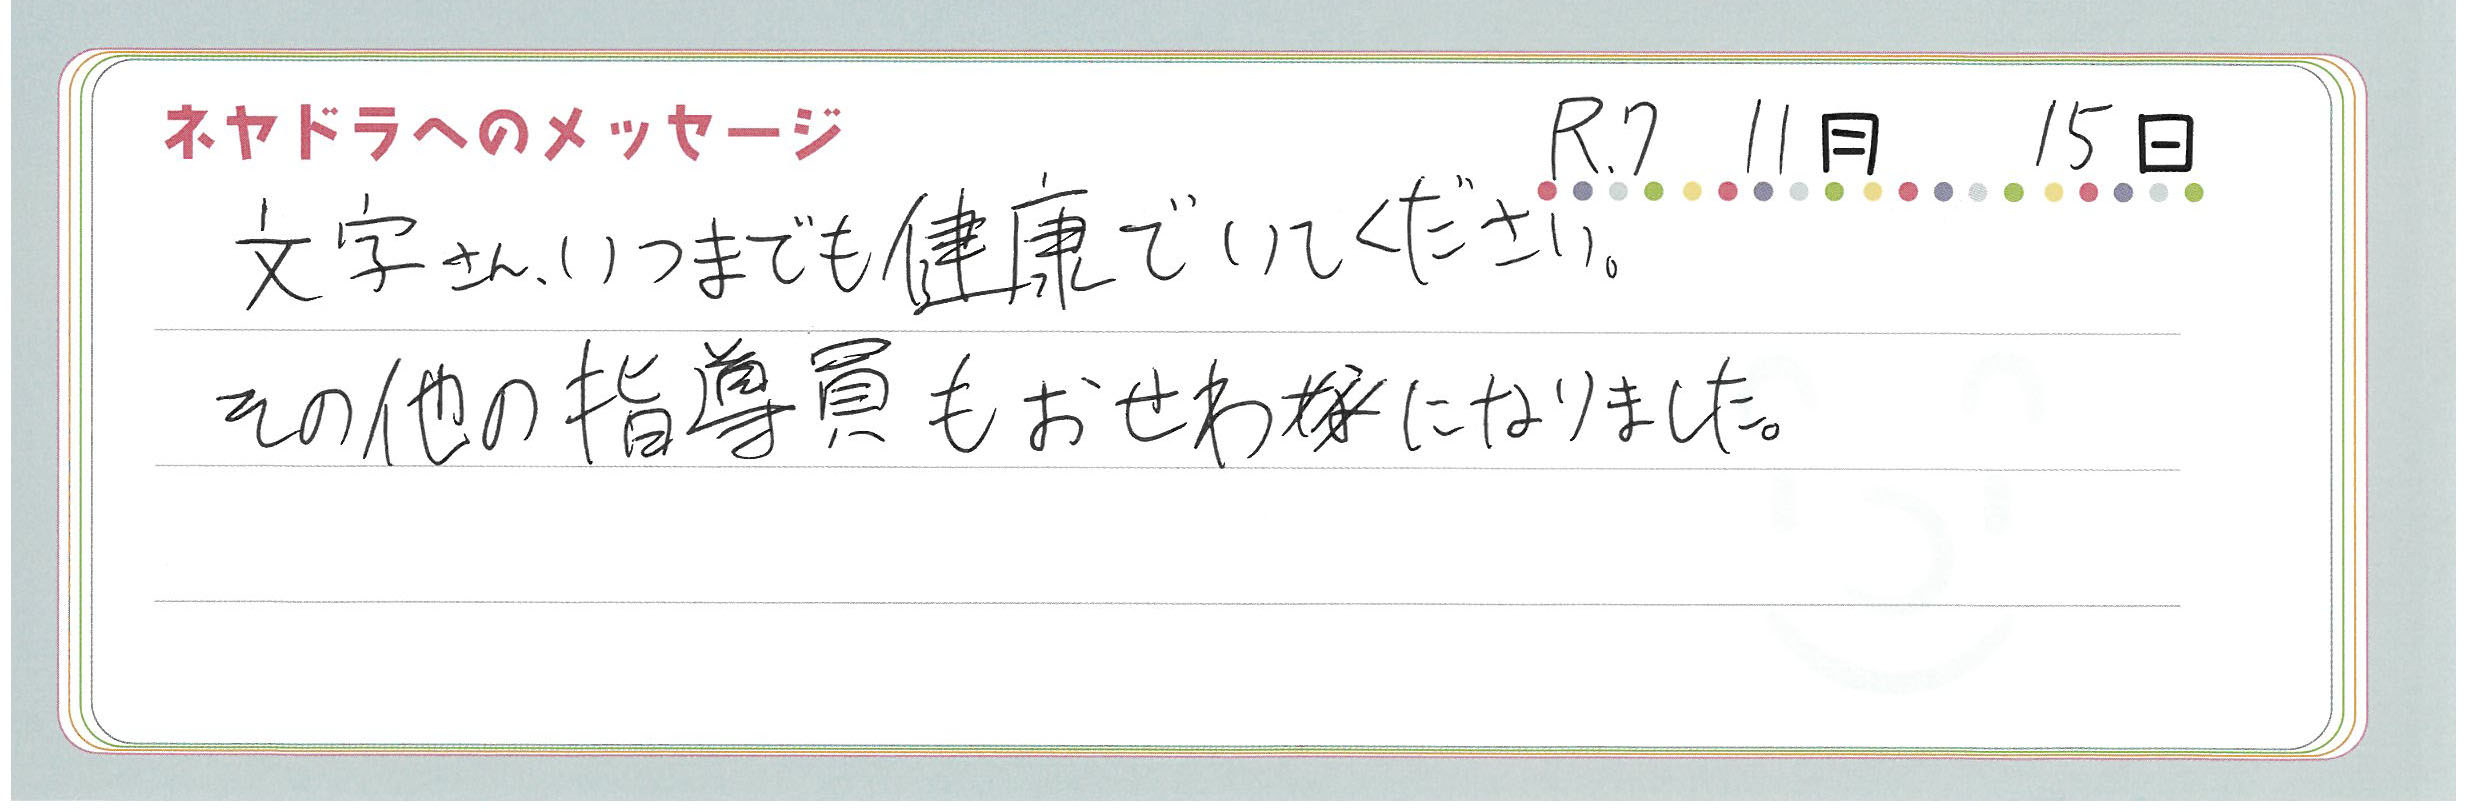 ネヤドラへのメッセージ
R.7 11月 15日
文字さん、いつまでも健康でいてください。
その他の指導員もおせわになりました。